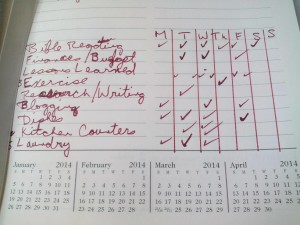 M T W Th F S S
Bible Reading
Finances/Budget
Lessons Learned
Exercise
Research/Writing
Blogging
Dishes
Kitchen Counters
Laundry
January 2014 February 2014 March 2014 April 2014
S M T W T F S S M T W T F S S M T W T F S S M T W T F S
1 2 3 4 1 1 1 2 3 4 5
5 6 7 8 9 10 11 2 3 4 5 6 7 8 2 3 4 5 6 7 8 6 7 8 9 10 11 12
12 13 14 15 16 17 18 9 10 11 12 13 14 15 9 10 11 12 13 14 15 13 14 15 16 17 18 19
19 20 21 22 23 24 25 16 17 18 19 20 21 22 16 17 18 19 20 21 22 20 21 22 23 24 25 26
26 27 28 29 30 31 23 24 25 26 27 28 23/30 24/31 25 26 27 28 29 27 28 29 30